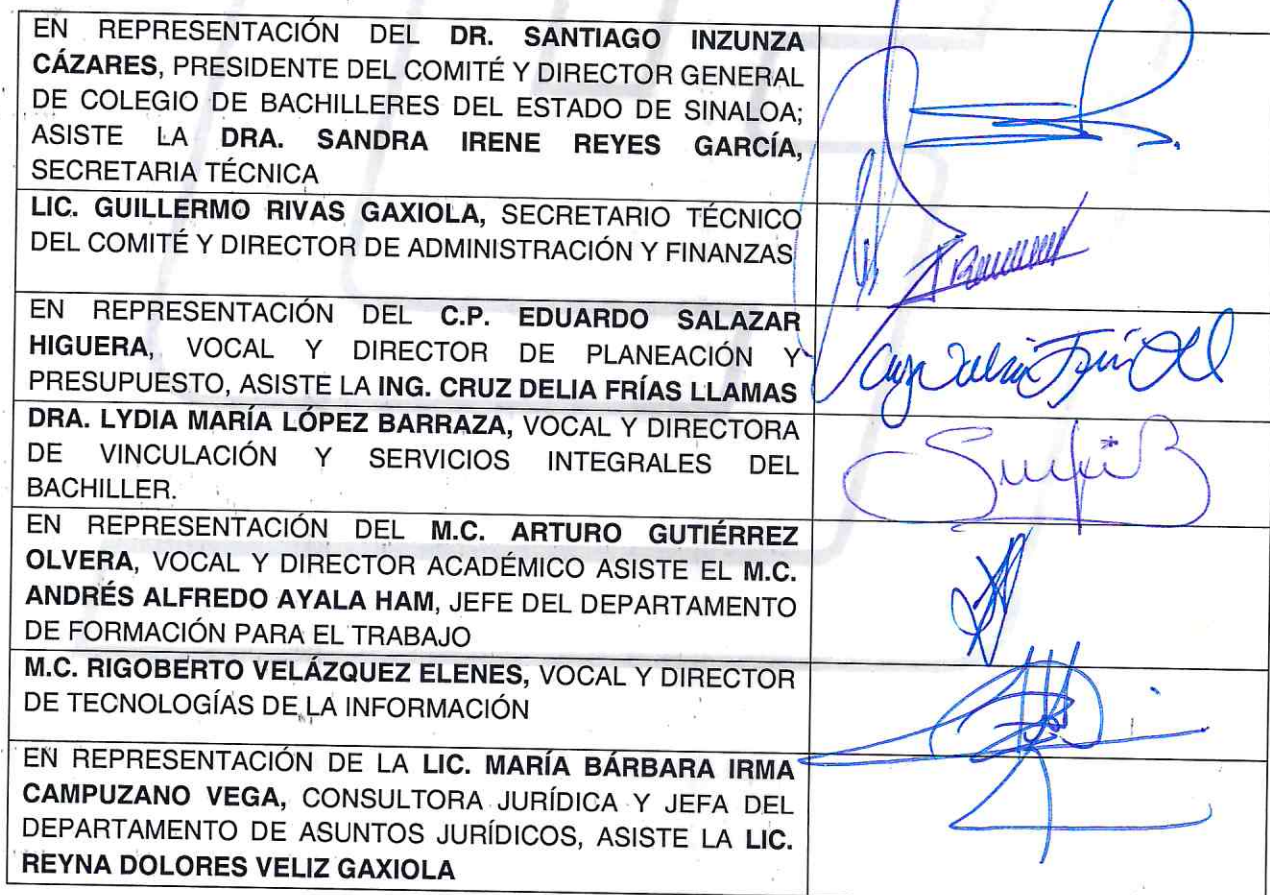 EN REPRESENTACIÓN DEL DR. SANTIAGO INZUNZA
CÁZARES, PRESIDENTE DEL COMITÉ Y DIRECTOR GENERAL
DE COLEGIO DE BACHILLERES DEL ESTADO DE SINALOA;
ASISTE LA DRA. SANDRA IRENE REYES GARCÍA,
SECRETARIA TÉCNICA
LIC. GUILLERMO RIVAS GAXIOLA, SECRETARIO TÉCNICO
DEL COMITÉ Y DIRECTOR DE ADMINISTRACIÓN Y FINANZAS
EN REPRESENTACIÓN DEL C.P. EDUARDO SALAZAR
HIGUERA, VOCAL Y DIRECTOR DE PLANEACIÓN Y
PRESUPUESTO, ASISTE LA ING. CRUZ DELIA FRÍAS LLAMAS
Cruz Delia Frías Ll
DRA. LYDIA MARÍA LÓPEZ BARRAZA, VOCAL Y DIRECTORA
DE VINCULACIÓN Y SERVICIOS INTEGRALES DEL
BACHILLER.
EN REPRESENTACIÓN DEL M.C. ARTURO GUTIÉRREZ
OLVERA, VOCAL Y DIRECTOR ACADÉMICO ASISTE EL M.C.
ANDRÉS ALFREDO AYALA HAM, JEFE DEL DEPARTAMENTO
DE FORMACIÓN PARA EL TRABAJO
M.C. RIGOBERTO VELÁZQUEZ ELENES, VOCAL Y DIRECTOR
DE TECNOLOGÍAS DE LA INFORMACIÓN
EN REPRESENTACIÓN DE LA LIC. MARÍA BÁRBARA IRMA
CAMPUZANO VEGA, CONSULTORA JURÍDICA Y JEFA DEL
DEPARTAMENTO DE ASUNTOS JURÍDICOS, ASISTE LA LIC.
REYNA DOLORES VELIZ GAXIOLA